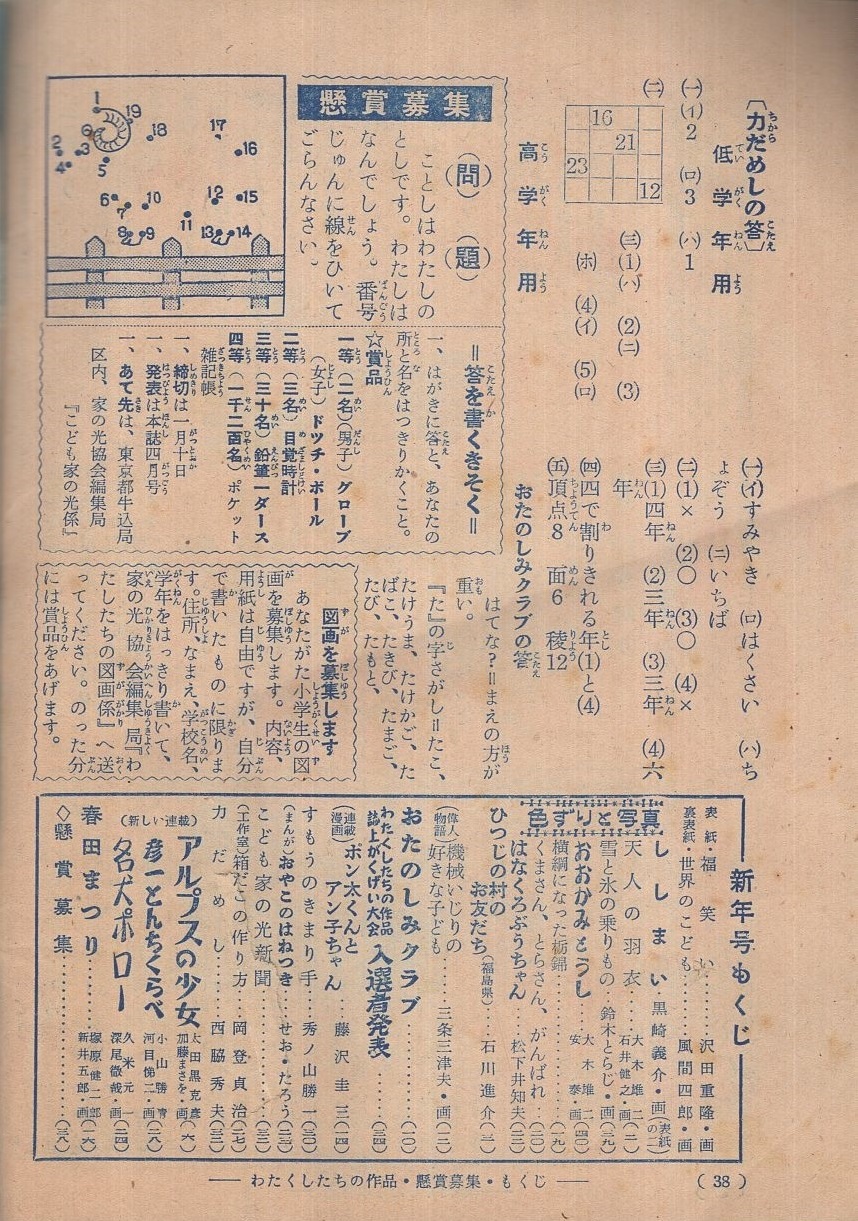 〔力だめしの答〕
低学年用
㈠㋑2 ㋺3 ㋩1
㈡
16
21
23
12
㈢⑴㋩ ⑵㋥ ⑶
㋭ ⑷㋑ ⑸㋺
高学年用
㈠㋑すみやき ㋺はくさい ㋩ち
ょぞう ㋥いちば
㈡⑴× ⑵○ ⑶○ ⑷×
㈢⑴四年 ⑵三年 ⑶三年 ⑷六
年
㈣四で割りきれる年⑴と⑷
㈤頂点8 面6 稜12
おたのしみクラブの答
はてな?=まえの方が
重い。
『た』の字さがし=たこ、
たけうま、たけかご、た
ばこ、たきび、たまご、
たび、たもと、
懸賞募集
(問)(題)
ことしはわたしの
としです。わたしは
なんでしょう。番号
じゅんに線をひいて
ごらんなさい。
1
2
3
4
5
6
6
7
8
9
10
11
12
13
14
15
16
17
18
19
=答を書くきそく=
一、はがきに答と、あなたの
所と名をはつきりかくこと。
☆賞品
一等(二名)(男子)グローブ
(女子)ドツチ・ボール
二等(三名)目覚時計
三等(三十名)鉛筆一ダース
四等(一千二百名)ポケット
雑記帳
一、締切は一月十日
一、発表は本誌四月号
一、あて先は、東京都牛込局
区内、家の光協会編集局
『こども家の光係』
図画を募集します
あなたがた小学生の図
画を募集します。内容、
用紙は自由ですが、自分
で書いたものに限りま
す。住所、なまえ、学校名、
学年をはっきり書いて、
家の光協会編集局『わ
たしたちの図画係』へ送
ってください。のった分
には賞品をあげます。
新年号もくじ
表紙・福笑い……沢田重隆・画
裏表紙・世界のこども……風間四郎・画
色ずりと写真
ししまい・黒崎義介・画(表紙の二)
天人の羽衣……大木雄二 石井健之・画(二)
雪と氷の乗りもの…鈴木とらじ・画(三九)
おおかみとうし……大木雄二 安泰・画(四〇)
横綱になった栃錦……(一九)
くまさん、とらさん、がんばれ…(二〇)
はなくろぶうちゃん……松下井知夫(三二)
ひつじの村のお友だち(福島県)…石川進介(三)
(偉人物語)機械いじりの好きな子ども……三条三津夫・画(一二)
おたのしみクラブ……(一〇)
わたくしたちの作品
誌上がくげい大会 入選者発表……(三四)
(連載漫画)ポン太くんとアン子ちゃん……藤沢圭三(一四)
すもうのきまり手・秀ノ山勝一(三〇)
(まんが)おやこのはねつき・せお・たろう(二三)
こども家の光新聞……(三二)
(工作室)箱だこの作り方……岡登貞治(二七)
力だめし……西脇秀夫(三三)
アルプスの少女 太田黒克彦 加藤まさを・画(六)
(新しい連載)彦一とんちくらべ 小山勝清 河目悌二・画(二八)
名犬ポロー 久米元一 深尾徹哉・画(二四)
春田まつり……塚原健二郎 新井五郎・画(一六)
◇懸賞募集……(三八)
── わたくしたちの作品・懸賞募集・もくじ ──
(38)